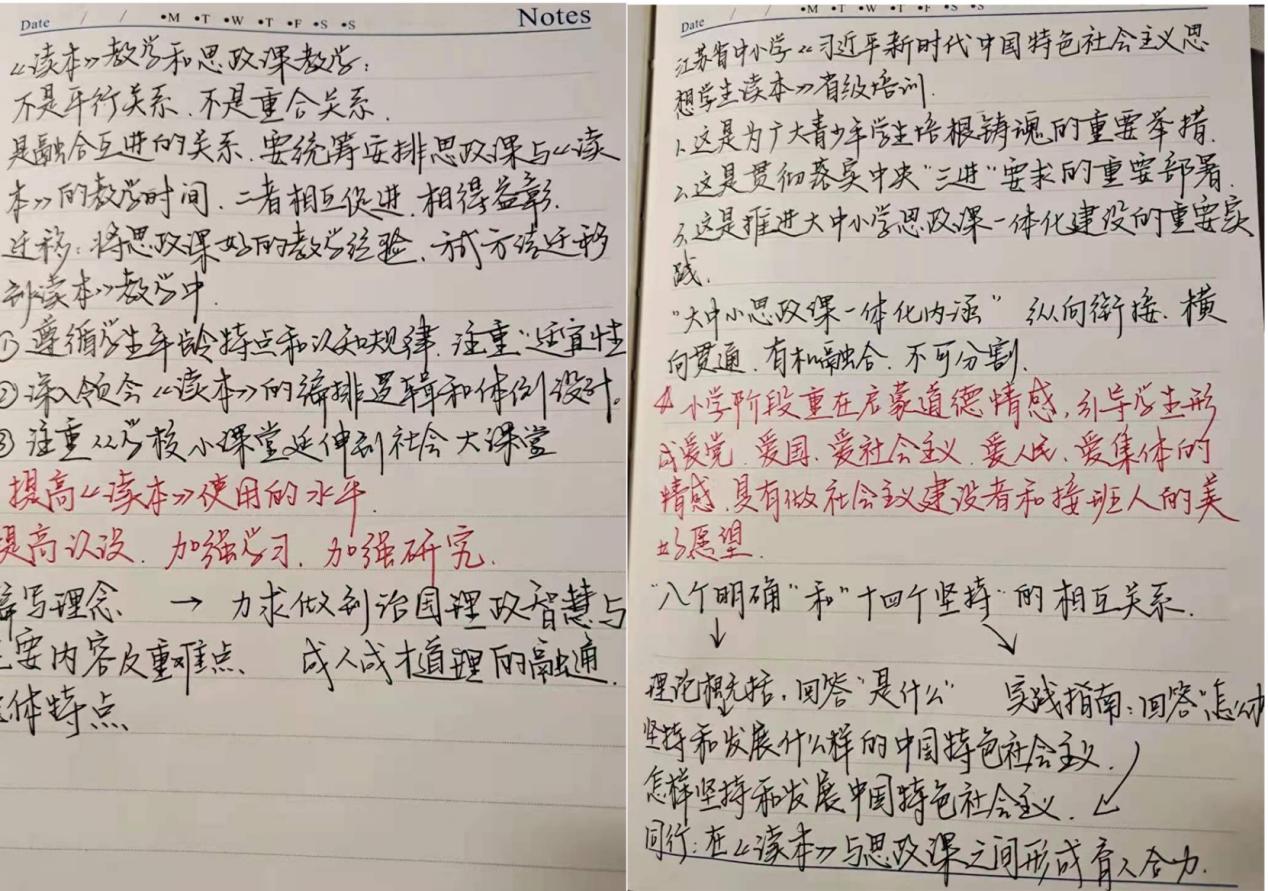 Date / / •M •T •W •T •F •S •S Notes
《读本》教学和思政课教学:
不是平行关系、不是重合关系.
是融合互进的关系.要统筹安排思政课与《读
本》的教学时间.二者相互促进.相得益彰.
迁移:将思政课好的教学经验、方式方法迁移
到《读本》教学中.
① 遵循学生年龄特点和认知规律.注重"适宜性
② 深入领会《读本》的编排逻辑和体例设计。
③ 注重从学校小课堂延伸到社会大课堂
提高《读本》使用的水平.
提高认设.加强学习.加强研究.
编写理念 → 力求做到治国理政智慧与
主要内容及重难点、 成人成才道理的融通.
体特点
Date / / •M •T •W •T •F •S •S
江苏省中小学《习近平新时代中国特色社会主义思
想学生读本》省级培训.
1.这是为广大青少年学生培根铸魂的重要举措.
2.这是贯彻落实中央"三进"要求的重要部署.
3.这是推进大中小学思政课一体化建设的重要实
践.
"大中小思政课一体化内涵" 纵向衔接、横
向贯通.有机融合.不可分割.
小学阶段重在启蒙道德情感.引导学生形
成爱党、爱国、爱社会主义、爱人民、爱集体的
情感.具有做社会主义建设者和接班人的美
好愿望.
"八个明确"和"十四个坚持"的相互关系.
↓ ↘
理论概括.回答"是什么" 实践指南:回答"怎么办
坚持和发展什么样的中国特色社会主义.
怎样坚持和发展中国特色社会主义.
同行:在《读本》与思政课之间形成育人合力.